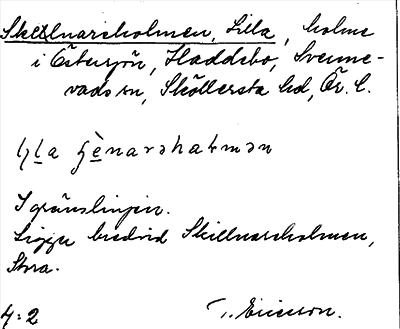 Skillnarsholmen, Lilla, holme
i Östersjön, Haddebo, Svenne-
vads sn, Sköllersta hd, Ör. l.
I gränslinjen.
Ligger bredvid Skillnarsholmen,
Stora.
4:2 T. Ericsson.